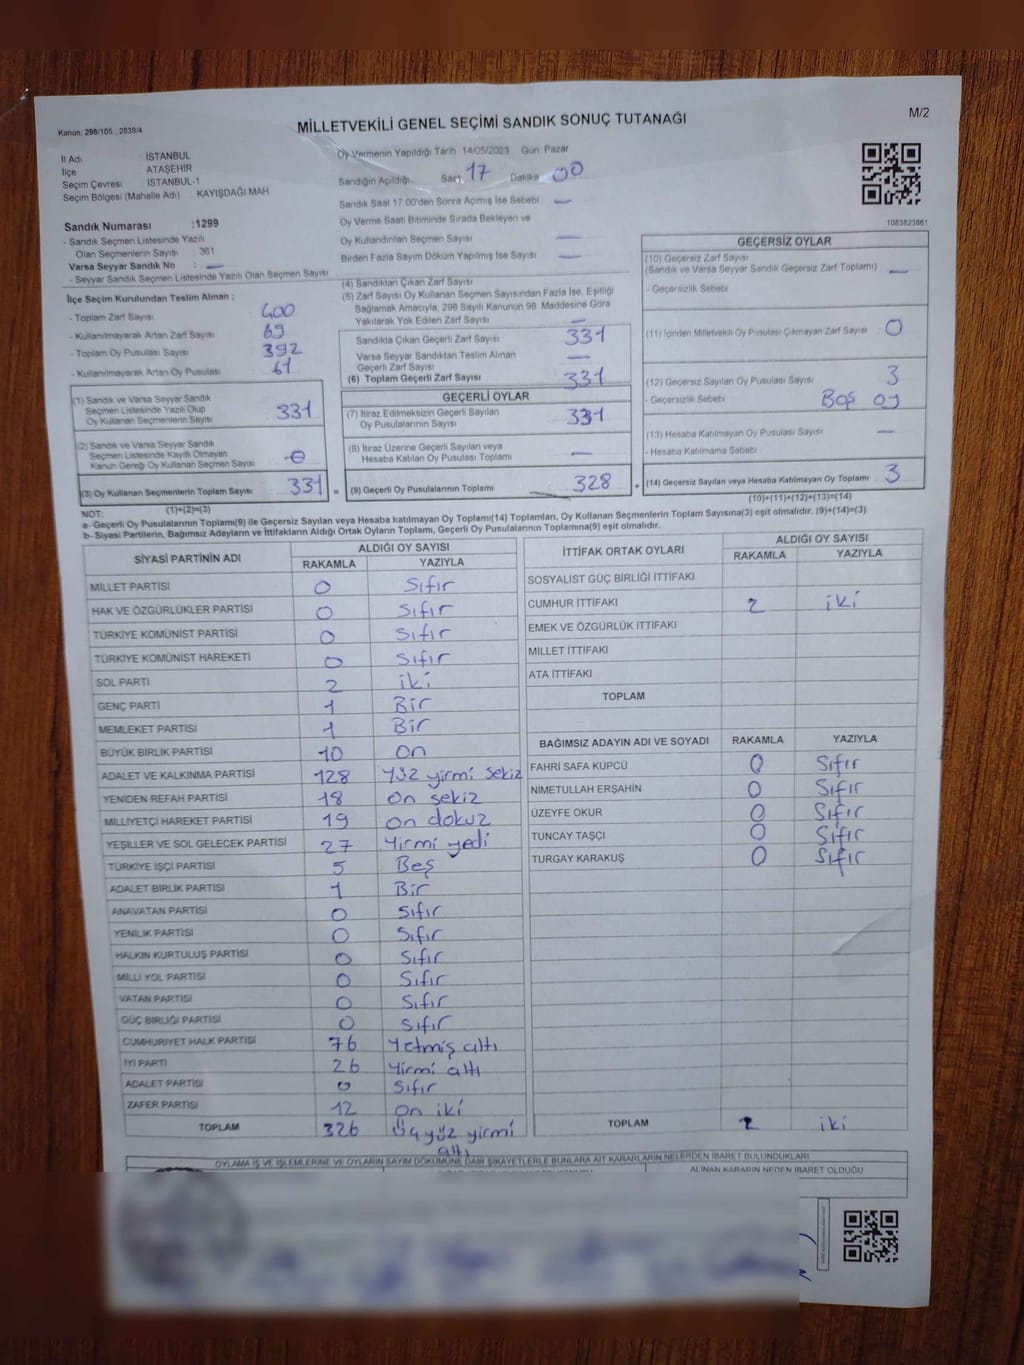 M/2
Kanun: 298/105 , 2839/4
MİLLETVEKİLİ GENEL SEÇİMİ SANDIK SONUÇ TUTANAĞI
İl Adı İSTANBUL
İlçe ATAŞEHİR
Seçim Çevresi İSTANBUL-1
Seçim Bölgesi (Mahalle Adı) KAYIŞDAĞI MAH
Sandık Numarası :1299
- Sandık Seçmen Listesinde Yazılı
Olan Seçmenlerin Sayısı 361
Varsa Seyyar Sandık No : —
- Seyyar Sandık Seçmen Listesinde Yazılı Olan Seçmen Sayısı
Oy Vermenin Yapıldığı Tarih 14/05/2023 Gün: Pazar
Sandığın Açıldığı Saat 17 Dakika 00
Sandık Saat 17.00'den Sonra Açılmış İse Sebebi —
Oy Verme Saati Bitiminde Sırada Bekleyen ve
Oy Kullandırılan Seçmen Sayısı —
Birden Fazla Sayım Döküm Yapılmış İse Sayısı —
1083823661
İlçe Seçim Kurulundan Teslim Alınan ;
- Toplam Zarf Sayısı : 400
- Kullanılmayarak Artan Zarf Sayısı : 69
- Toplam Oy Pusulası Sayısı : 392
- Kullanılmayarak Artan Oy Pusulası : 61
(1) Sandık ve Varsa Seyyar Sandık
Seçmen Listesinde Yazılı Olup
Oy Kullanan Seçmenlerin Sayısı 331
(2) Sandık ve Varsa Seyyar Sandık
Seçmen Listesinde Kayıtlı Olmayan
Kanun Gereği Oy Kullanan Seçmen Sayısı 0
(3) Oy Kullanan Seçmenlerin Toplam Sayısı 331 =
(1)+(2)=(3)
(4) Sandıktan Çıkan Zarf Sayısı
(5) Zarf Sayısı Oy Kullanan Seçmen Sayısından Fazla İse, Eşitliği
Sağlamak Amacıyla, 298 Sayılı Kanunun 98. Maddesine Göre
Yakılarak Yok Edilen Zarf Sayısı —
Sandıkta Çıkan Geçerli Zarf Sayısı 331
Varsa Seyyar Sandıktan Teslim Alınan
Geçerli Zarf Sayısı —
(6) Toplam Geçerli Zarf Sayısı 331
GEÇERLİ OYLAR
(7) İtiraz Edilmeksizin Geçerli Sayılan
Oy Pusulalarının Sayısı 331
(8) İtiraz Üzerine Geçerli Sayılan veya
Hesaba Katılan Oy Pusulası Toplamı —
(9) Geçerli Oy Pusulalarının Toplamı 328 +
GEÇERSİZ OYLAR
(10) Geçersiz Zarf Sayısı
(Sandık ve Varsa Seyyar Sandık Geçersiz Zarf Toplamı) —
- Geçersizlik Sebebi
(11) İçinden Milletvekili Oy Pusulası Çıkmayan Zarf Sayısı 0
(12) Geçersiz Sayılan Oy Pusulası Sayısı 3
- Geçersizlik Sebebi Boş oy
(13) Hesaba Katılmayan Oy Pusulası Sayısı —
- Hesaba Katılmama Sebebi
(14) Geçersiz Sayılan veya Hesaba Katılmayan Oy Toplamı 3
(10)+(11)+(12)+(13)=(14)
NOT:
a- Geçerli Oy Pusulalarının Toplamı(9) ile Geçersiz Sayılan veya Hesaba katılmayan Oy Toplamı(14) Toplamları, Oy Kullanan Seçmenlerin Toplam Sayısına(3) eşit olmalıdır. (9)+(14)=(3)
b- Siyasi Partilerin, Bağımsız Adayların ve İttifakların Aldığı Ortak Oyların Toplamı, Geçerli Oy Pusulalarının Toplamına(9) eşit olmalıdır.
SİYASİ PARTİNİN ADI ALDIĞI OY SAYISI
RAKAMLA YAZIYLA
MİLLET PARTİSİ 0 Sıfır
HAK VE ÖZGÜRLÜKLER PARTİSİ 0 Sıfır
TÜRKİYE KOMÜNİST PARTİSİ 0 Sıfır
TÜRKİYE KOMÜNİST HAREKETİ 0 Sıfır
SOL PARTİ 2 iki
GENÇ PARTİ 1 Bir
MEMLEKET PARTİSİ 1 Bir
BÜYÜK BİRLİK PARTİSİ 10 on
ADALET VE KALKINMA PARTİSİ 128 yüz yirmi sekiz
YENİDEN REFAH PARTİSİ 18 on sekiz
MİLLİYETÇİ HAREKET PARTİSİ 19 on dokuz
YEŞİLLER VE SOL GELECEK PARTİSİ 27 Yirmi yedi
TÜRKİYE İŞÇİ PARTİSİ 5 Beş
ADALET BİRLİK PARTİSİ 1 Bir
ANAVATAN PARTİSİ 0 Sıfır
YENİLİK PARTİSİ 0 Sıfır
HALKIN KURTULUŞ PARTİSİ 0 Sıfır
MİLLİ YOL PARTİSİ 0 Sıfır
VATAN PARTİSİ 0 Sıfır
GÜÇ BİRLİĞİ PARTİSİ 0 Sıfır
CUMHURİYET HALK PARTİSİ 76 Yetmiş altı
İYİ PARTİ 26 Yirmi altı
ADALET PARTİSİ 0 Sıfır
ZAFER PARTİSİ 12 on iki
TOPLAM 326 üçyüz yirmi
altı
İTTİFAK ORTAK OYLARI ALDIĞI OY SAYISI
RAKAMLA YAZIYLA
SOSYALİST GÜÇ BİRLİĞİ İTTİFAKI
CUMHUR İTTİFAKI 2 iki
EMEK VE ÖZGÜRLÜK İTTİFAKI
MİLLET İTTİFAKI
ATA İTTİFAKI
TOPLAM
BAĞIMSIZ ADAYIN ADI VE SOYADI RAKAMLA YAZIYLA
FAHRİ SAFA KÜPCÜ 0 Sıfır
NİMETULLAH ERŞAHİN 0 Sıfır
ÜZEYFE OKUR 0 Sıfır
TUNCAY TAŞÇI 0 Sıfır
TURGAY KARAKUŞ 0 Sıfır
TOPLAM 2 iki
OYLAMA İŞ VE İŞLEMLERİNE VE OYLARIN SAYIM DÖKÜMÜNE DAİR ŞİKAYETLERLE BUNLARA AİT KARARLARIN NELERDEN İBARET BULUNDUKLARI
ALINAN KARARIN NEDEN İBARET OLDUĞU